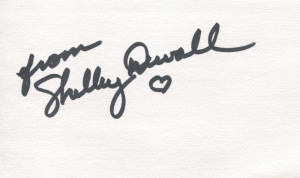 from
Shelley Duvall ♡